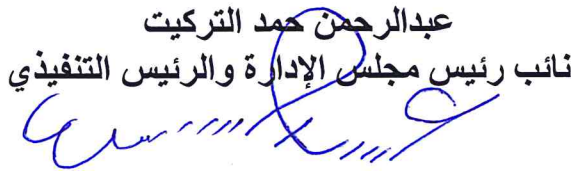 عبدالرحمن حمد التركيت
نائب رئيس مجلس الإدارة والرئيس التنفيذي